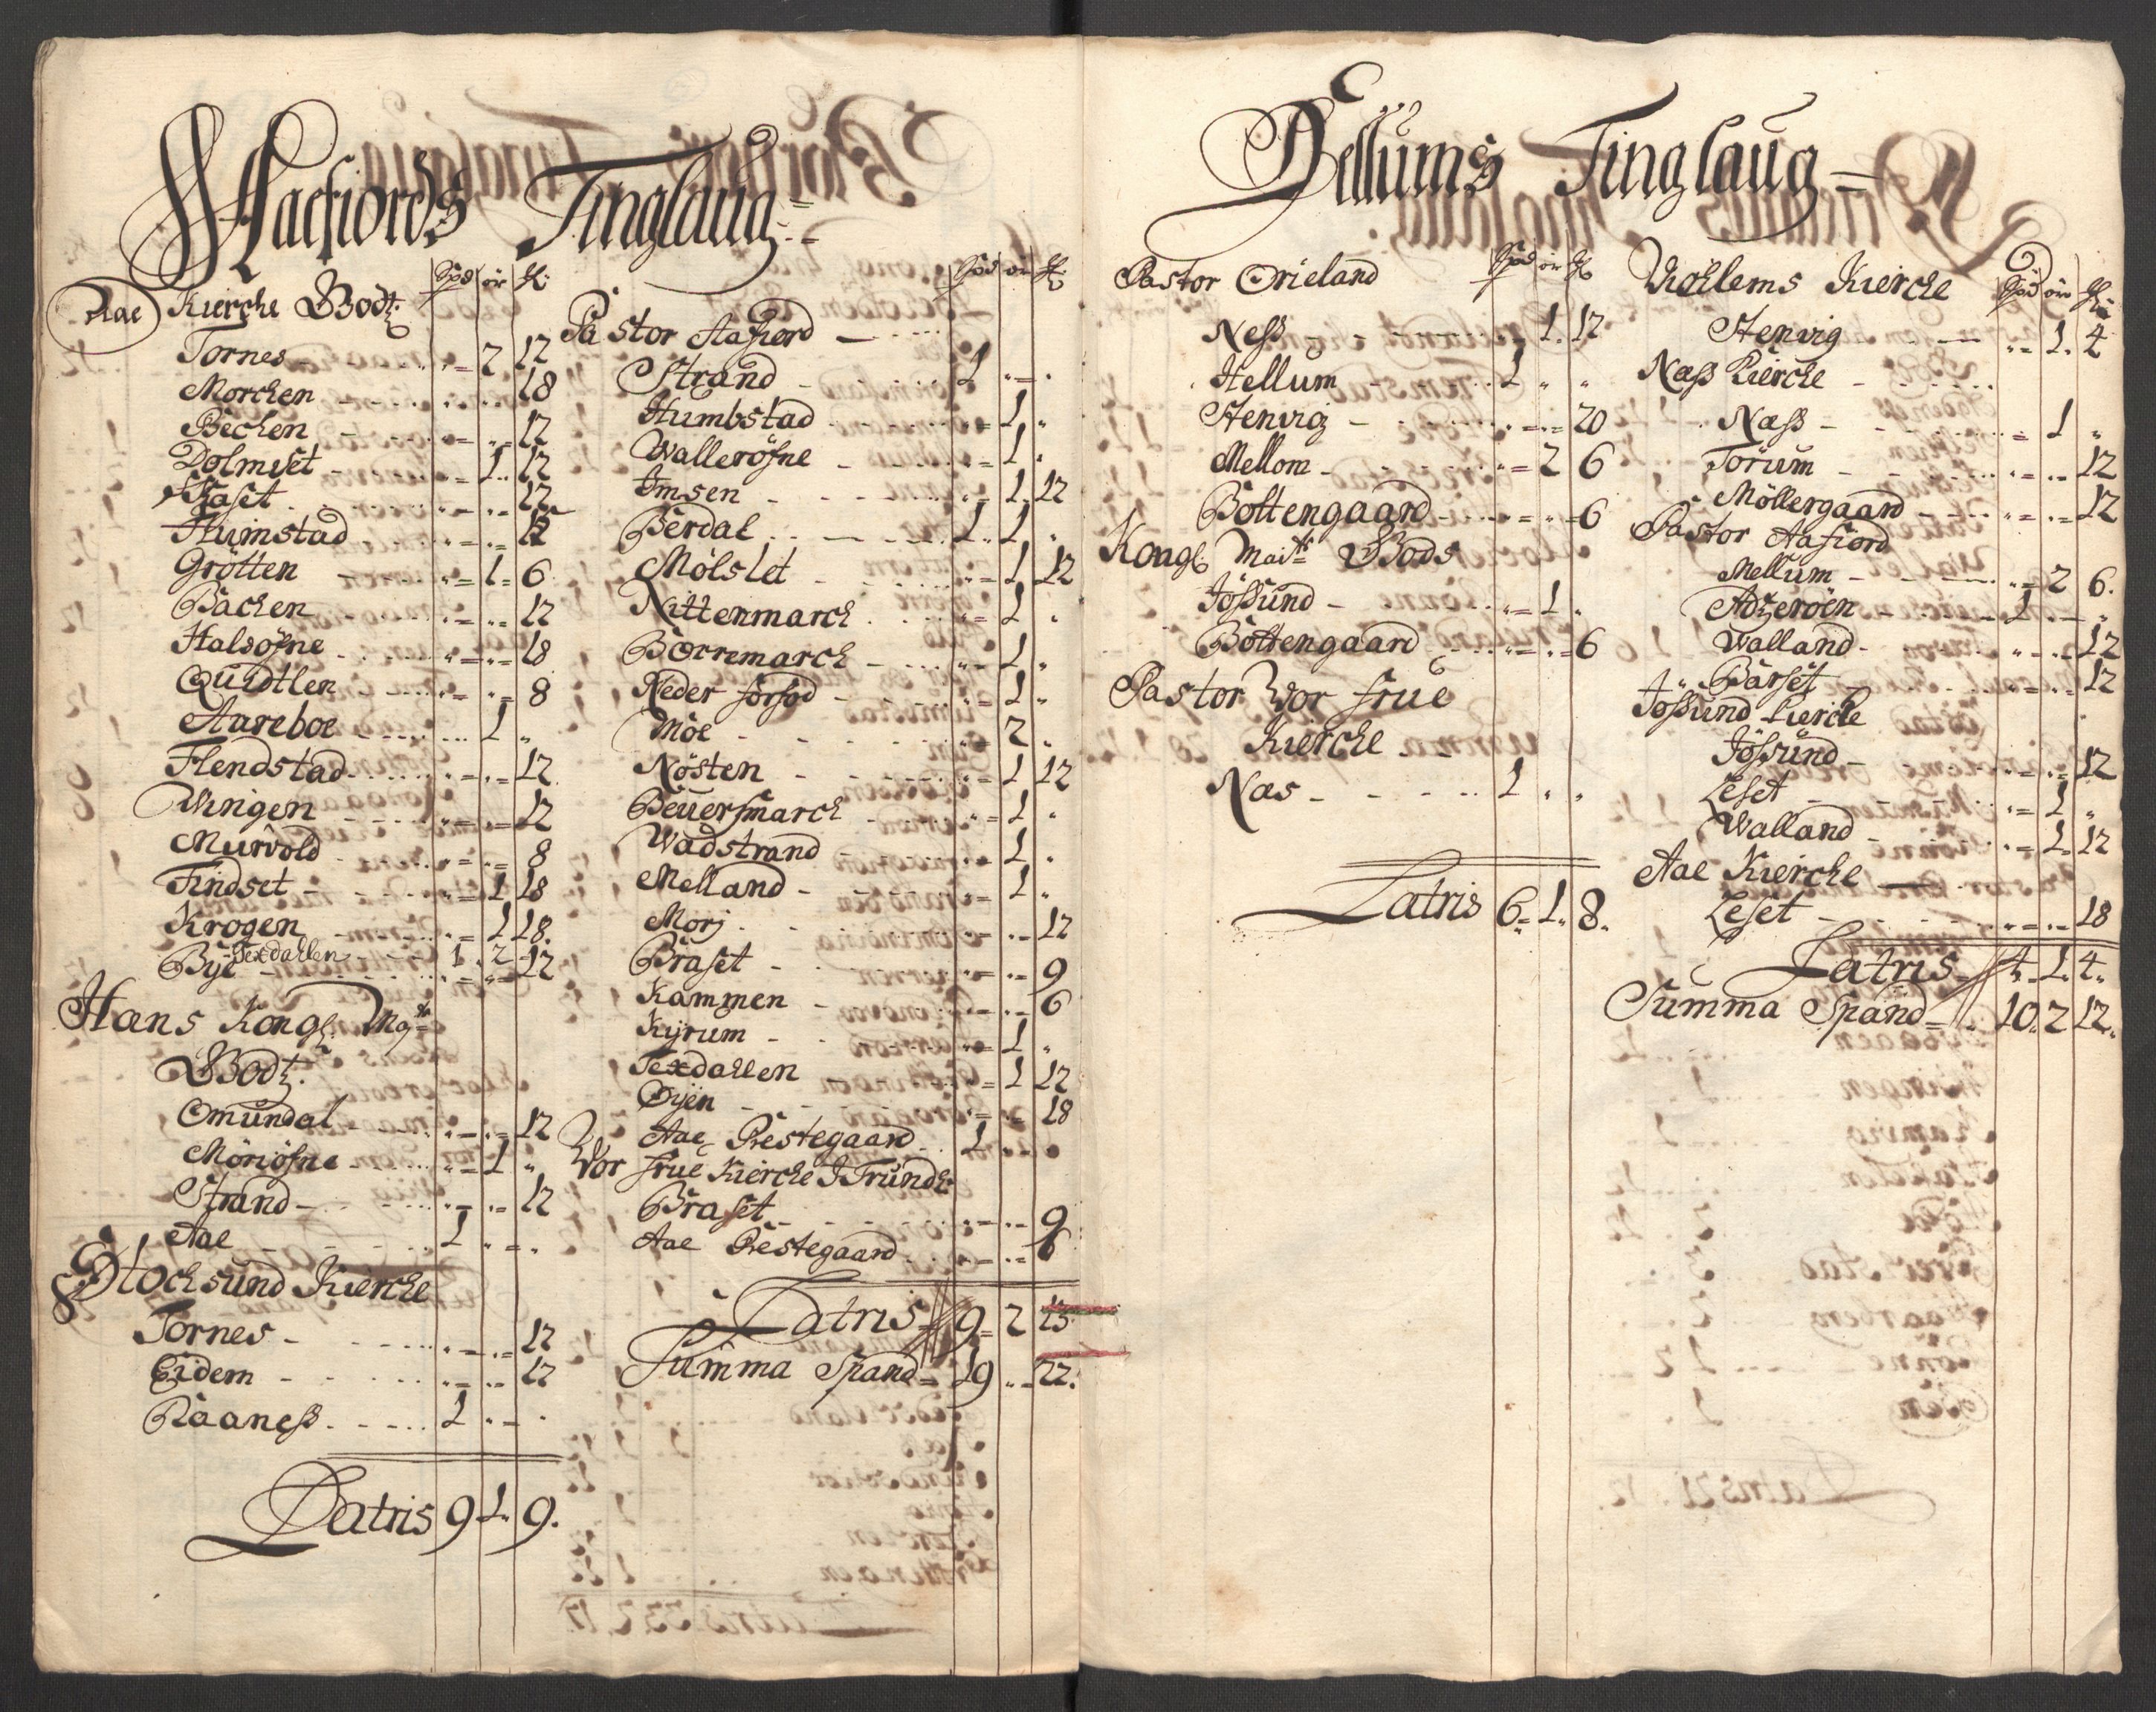 Aaefiords Tinglaug
Spd ör Ꝃ:
Aae Kierche Godtz
Tornes - 2 12
Morchen - 18
Bechen - 12
Dolmset - 1 12
Skaset - 12
Humstad - 12
Grötten - 1 6
Bachen - 12
Halsøfne - 18
Quidtlen - 8
Aareboe - 1 „
Flendstad - 12
Wingen - 12
Murvold - 8
Findset - 1 18
Krogen - 1 18
Texdahlen - 1 2
Bye - 12
Hans Kongl. May
Godtz.
Omundal - 12
Möriöfne - 1 „
Strand - 12
Aae - 1 „ „
Stochsund Kierche
Tornes - 12
Eidem - 12
Raaness - 1 „ „
Latris 9 1 9.
Spd ör
Pastor Aafiord
Strand - 1 „ „
Humbstad - 1 „
Walleröfne - 1 „
Imsen - 1 12
Berdal - 1 1 „
Mölslet - 1 12
Nittenmarch - 1 „
Borremarch - 1 „
Neder forsød - 1 „
Möe - 2 „
Nösten - 1 12
Beuersmarch - 1 „
Wadstrand - 1 „
Melland - 1 „
Morj - 12
Braset - 9
Kammen - 6
Kyrum - 1 „
Texdahlen 1 12
Öyen - 18
Aae Prestegaard 1
Vor frue Kierche I Trundh
Braset - 9
Aae Prestegaard - 6
Latris 9 2 15
Summa Spand 19 „ 22.
Dellums Tinglaug
Spd ör
Pastor Örieland
Ness - 1 12
Hellum - 1 „ „
Stenvig - 20
Mellom - 2 6
Bottengaard - 6
Kongl Maits Gods
Jössund - 1 „
Bottengaard - 6
Pastor Vor frue
Kierche
Næs - 1 „ „
Latris 6 1 8.
Spd ör
Vichlems Kierche
Stenvig - 1 4
Næss Kierche
Næss - 1 „
Torum - 12
Möllergaard - 12
Pastor Aafiord
Mellum - 2 6.
Adzeröen - 1 „
Walland - 12
Barset - 12
Jössund Kierche
Jössund - 12
Leset - 1 „
Walland - 1 12
Aae Kierche
Leset - 18
Latris 4 1 4
Summa Spand 10 2 12